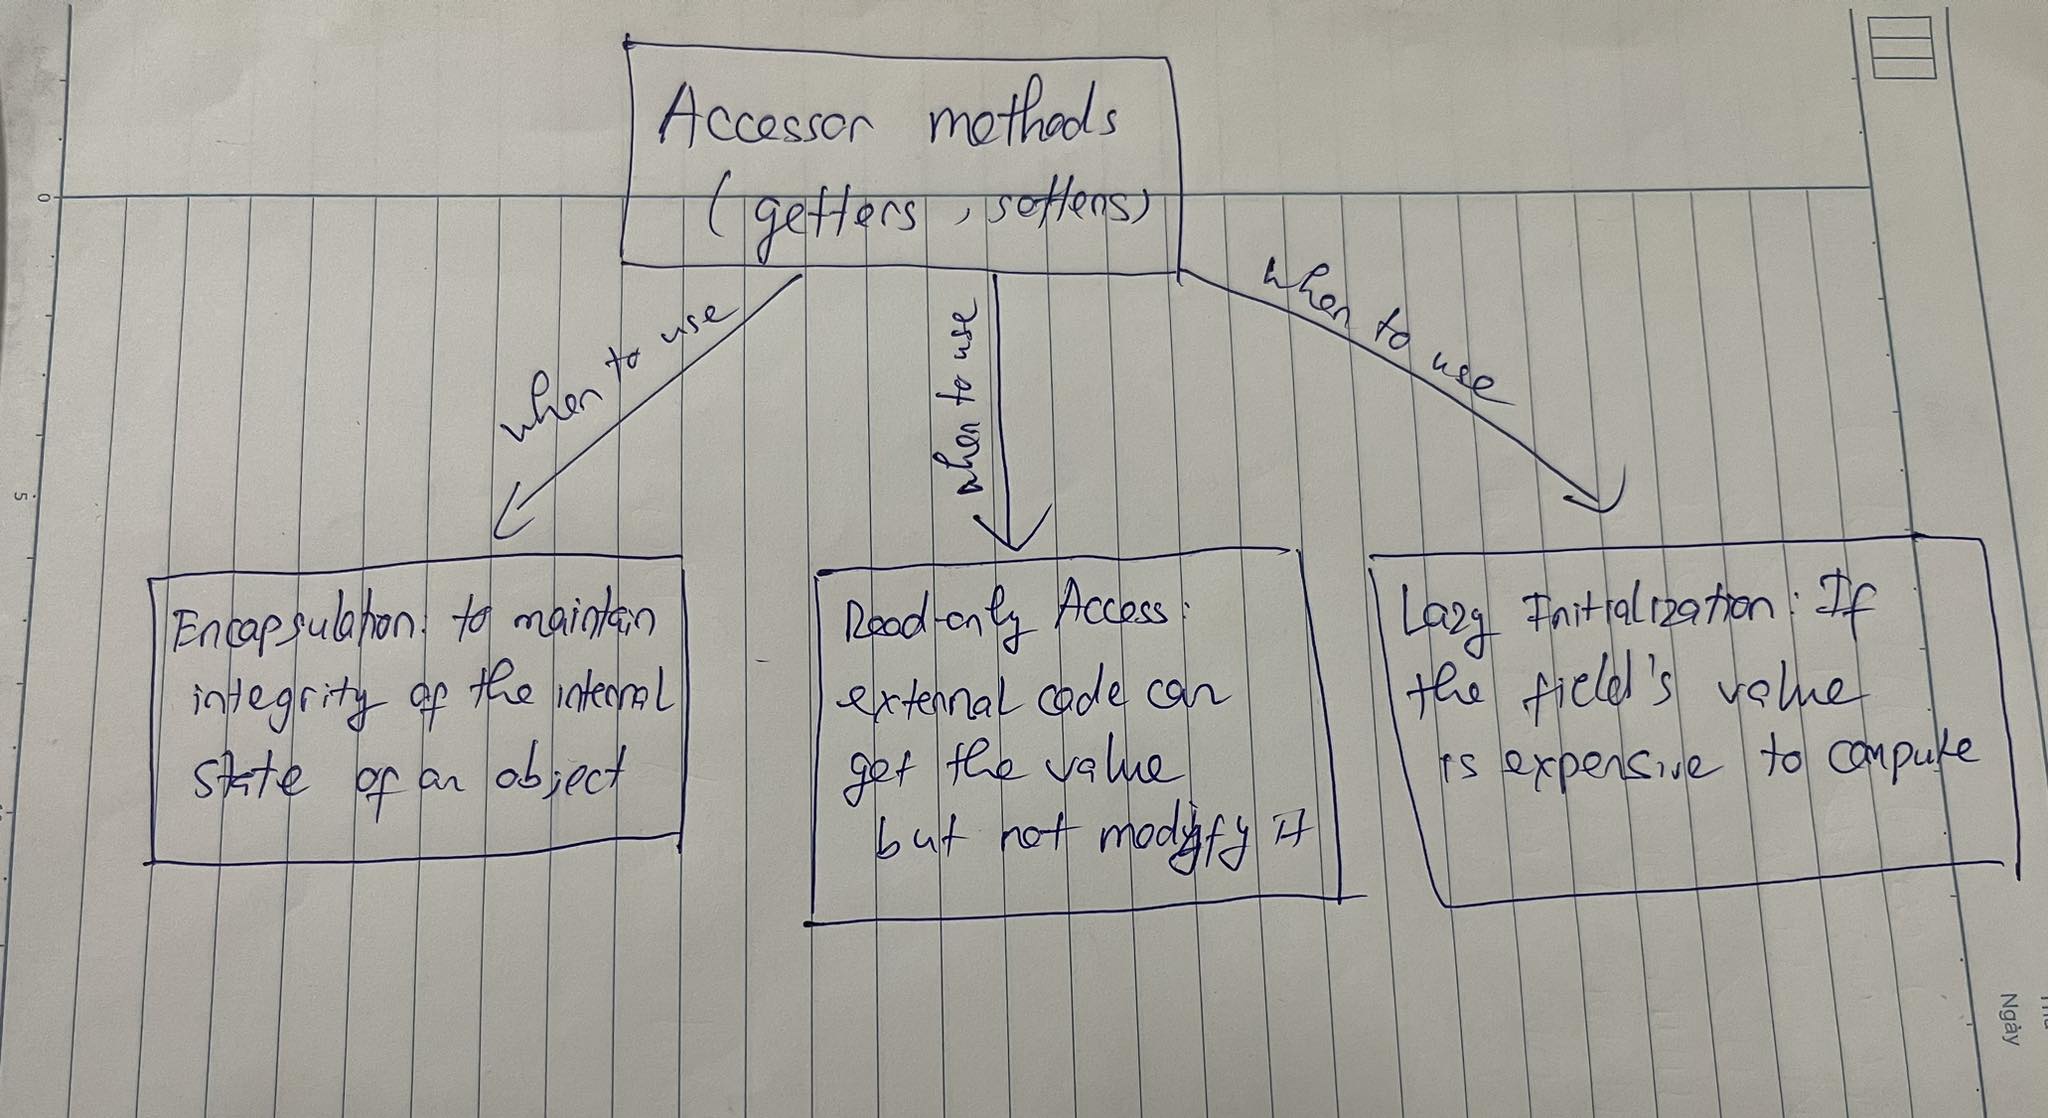 Accessor methods
(getters, setters)
when to use
when to use
when to use
Encapsulation: to maintain
integrity of the internal
state of an object
Read-only Access:
external code can
get the value
but not modify it
Lazy Initialization: If
the field's value
is expensive to compute
0
5
Ngày